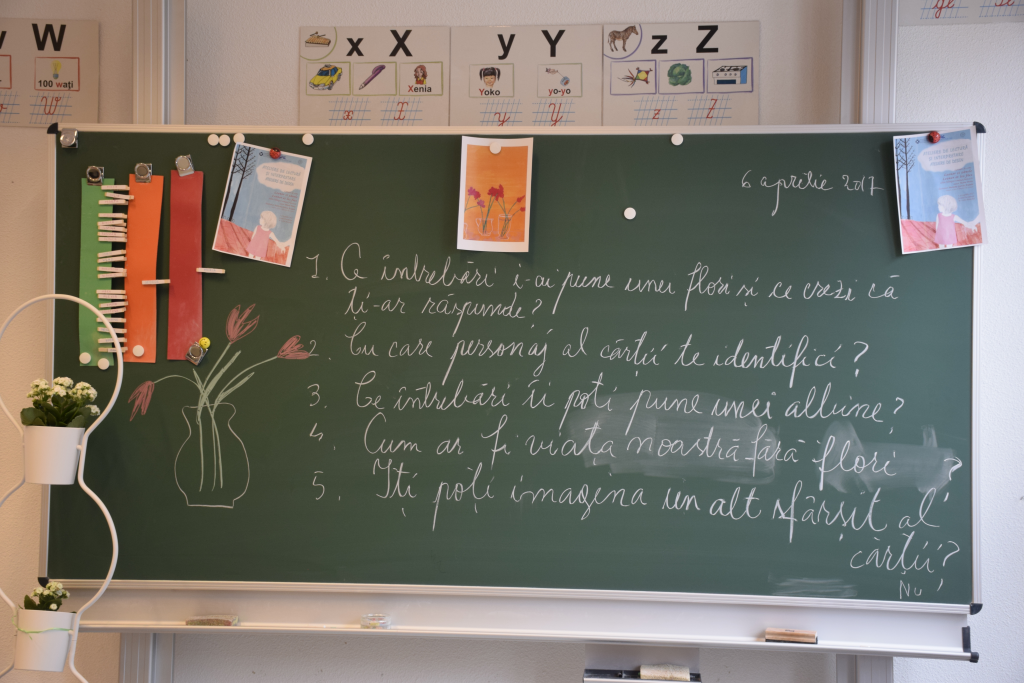 W
x X
y Y
z Z
100 wați
Xenia
Yoko
yo-yo
w
x X
y Y
z Z
6 aprilie 2017
1. Ce întrebări i-ai pune unei flori și ce crezi că
ți-ar răspunde?
2. Cu care personaj al cărții te identifici?
3. Ce întrebări îi poți pune unei albine?
4. Cum ar fi viata noastră fără flori ?
5. Iți poți imagina un alt sfârșit al
cărții?
Nu!